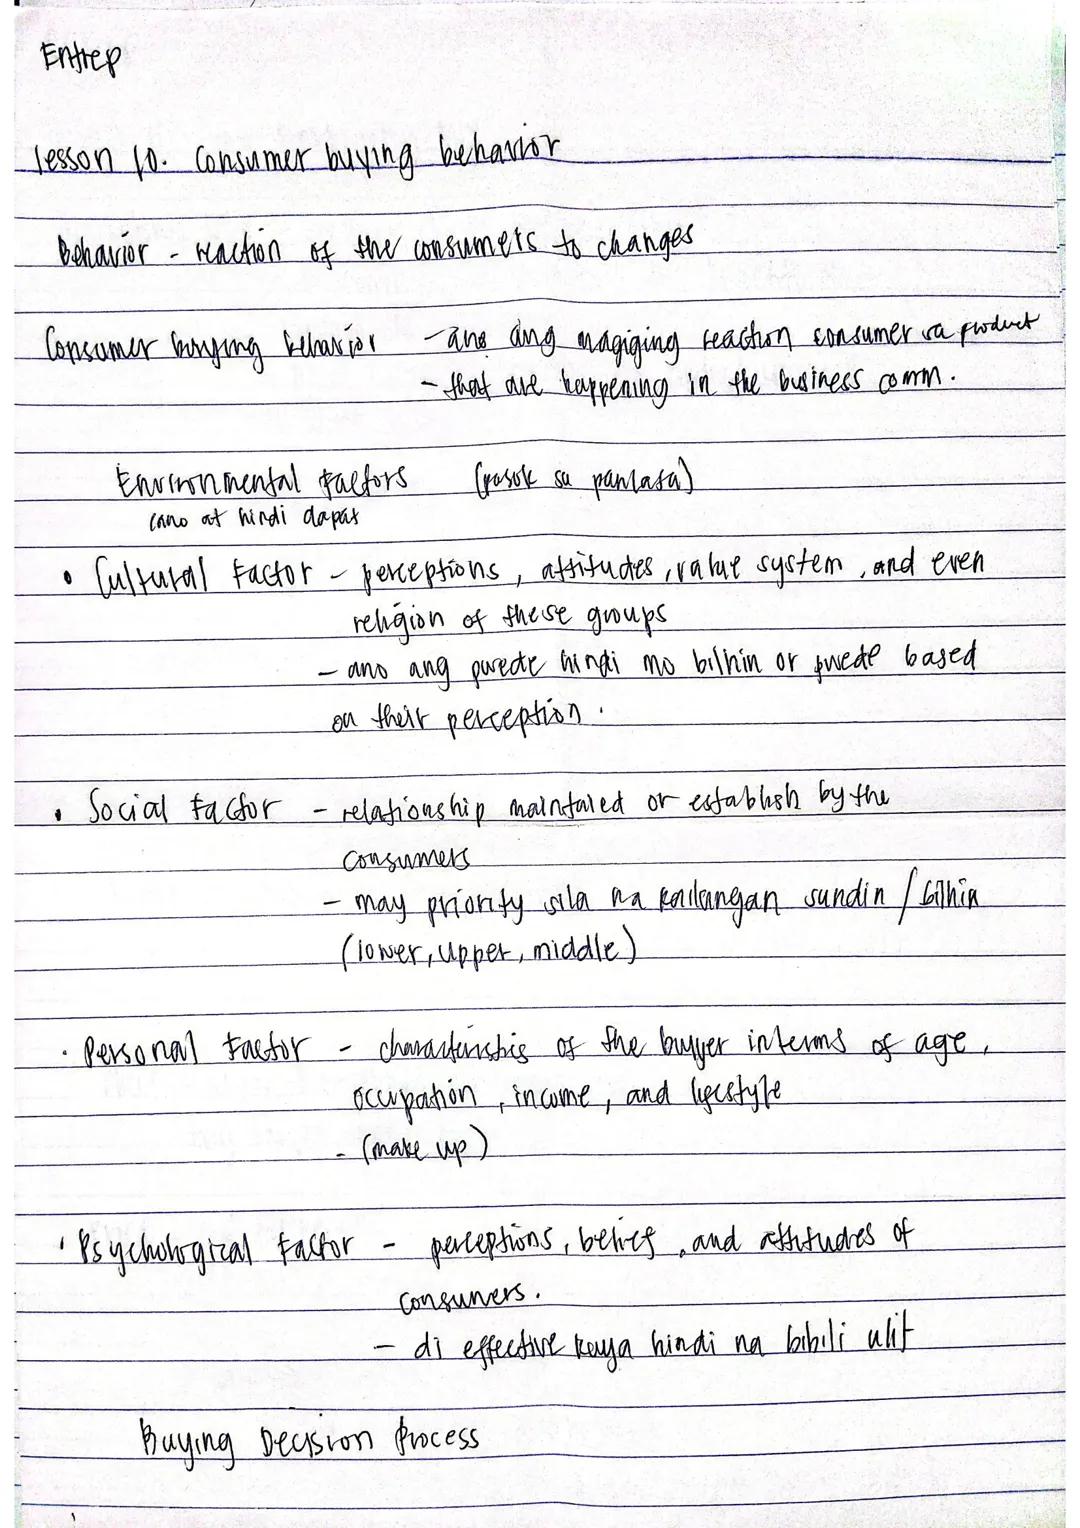 Entrep
lesson 10. Consumer buying behavior
Behavior - reaction of the consumers to changes
Consumer buying behavior - ano ang magiging reaction consumer sa product
- that are happening in the business comm.
Environmental Factors (pasok sa panlasa)
(ano at hindi dapat
• Cultural Factor - perceptions, attitudes, value system, and even
religion of these groups
- ano ang pwede hindi mo bilhin or pwede based
on their perception.
• Social factor - relationship maintained or establish by the
consumers
- may priority sila na kailangan sundin / bilhin
(lower, upper, middle)
• Personal Factor - characteristics of the buyer interms of age,
occupation, income, and lifestyle
- (make up)
• Psychological Factor - perceptions, belief, and attitudes of
consumers.
- di effective kaya hindi na bibili ulit
Buying Decision Process